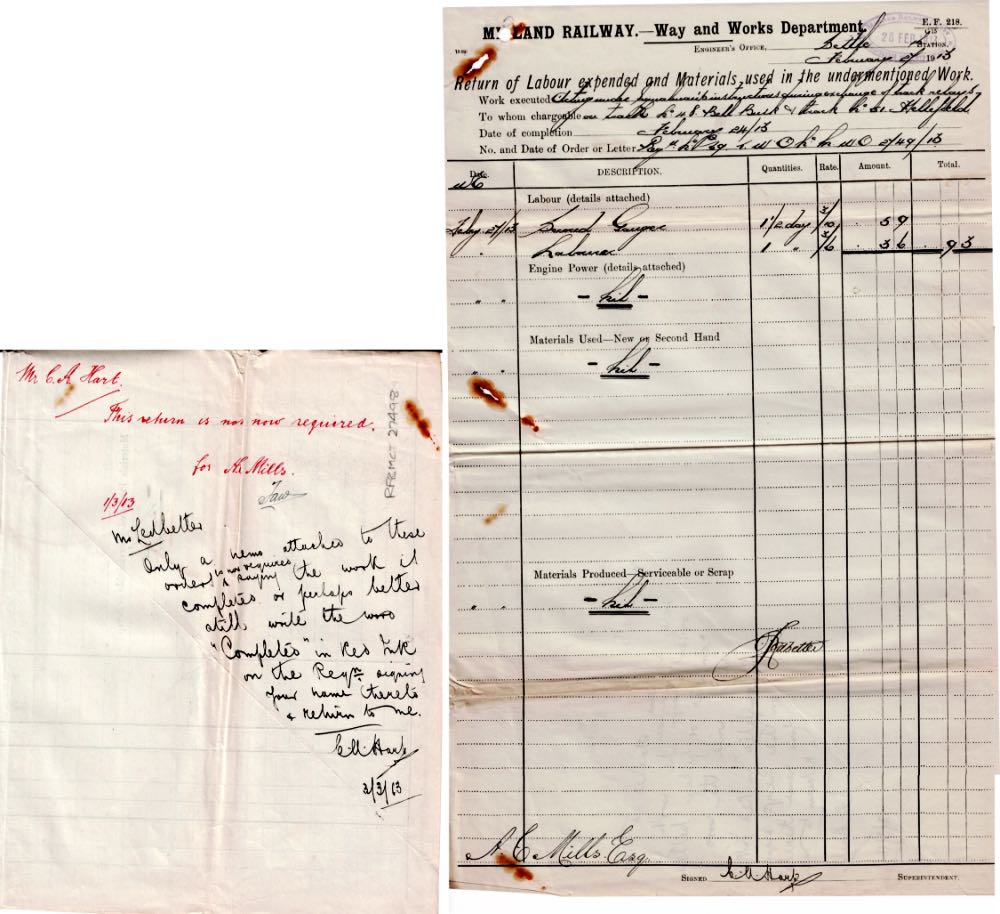 Mr C. A. Hart.
This return is not now required.
for A E Mills.
1/3/13
RFBMCT 27498
Mr Ledbetter
Only a memo attached to these
orders is now required
& saying the work is
completed or perhaps better
still write the word
"Completed" in Red Ink
on the Reqn. signing
your name thereto
& return to me.
C A Hart
3/3/13
E. F. 218.
MIDLAND RAILWAY.—Way and Works Department.
28 FEB
ENGINEER'S OFFICE,
Settle STATION.
February 27 1913
Return of Labour expended and Materials used in the undermentioned Work.
Work executed during exchange of
To whom chargeable Bell Busk & Hellifield
Date of completion February 24/13
No. and Date of Order or Letter 2749/13
Date. DESCRIPTION. Quantities. Rate. Amount. Total.
Labour (details attached)
Feby 27/13 1 1/2 day 3/10 5 9
" Labourer 1 " 3/6 3 6 9 3
Engine Power (details attached)
" " - Nil -
Materials Used—New or Second Hand
" " - Nil -
Materials Produced—Serviceable or Scrap
" " - Nil -
Ledbetter
A. E. Mills Esq.
SIGNED C A Hart SUPERINTENDENT.